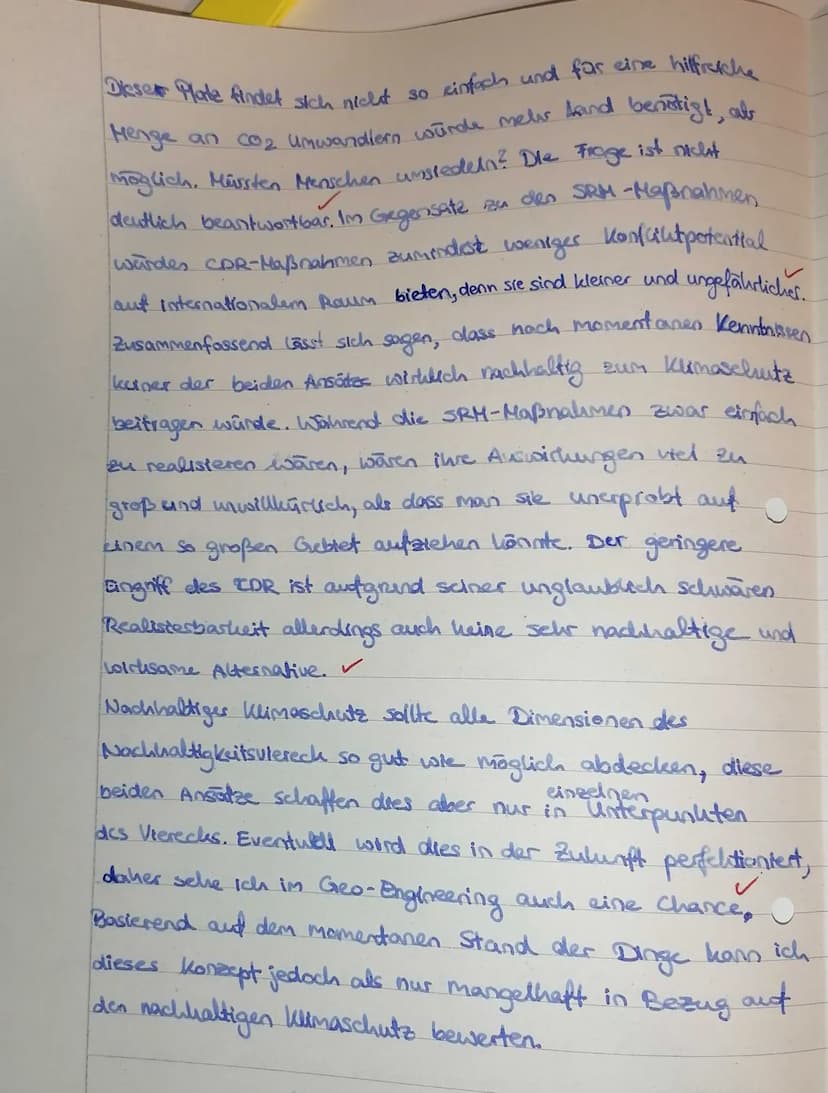 Dieser Platz findet sich nicht so einfach und für eine hilfreiche
Menge an CO2 Umwandlern würde mehr Land benötigt, als
möglich. Müssten Menschen umsiedeln? Die Frage ist nicht
deutlich beantwortbar. Im Gegensatz zu den SRM-Maßnahmen
würden CDR-Maßnahmen zumindest weniger Konfliktpotential
auf internationalem Raum bieten, denn sie sind kleiner und ungefährlicher.
Zusammenfassend lässt sich sagen, dass nach momentanen Kenntnissen
keiner der beiden Ansätze wirklich nachhaltig zum Klimaschutz
beitragen würde. Während die SRM-Maßnahmen zwar einfach
zu realisieren wären, wären ihre Auswirkungen viel zu
groß und unwillkürlich, als dass man sie unerprobt auf
einem so großen Gebiet aufziehen könnte. Der geringere
Eingriff des CDR ist aufgrund seiner unglaublich schwären
Realisierbarkeit allerdings auch keine sehr nachhaltige und
wirksame Alternative.
Nachhaltiger Klimaschutz sollte alle Dimensionen des
Nachhaltigkeitsviereck so gut wie möglich abdecken, diese
beiden Ansätze schaffen dies aber nur in einzelnen Unterpunkten
des Vierecks. Eventuell wird dies in der Zukunft perfektioniert,
daher sehe ich im Geo-Engineering auch eine Chance.
Basierend auf dem momentanen Stand der Dinge kann ich
dieses Konzept jedoch als nur mangelhaft in Bezug auf
den nachhaltigen Klimaschutz bewerten.